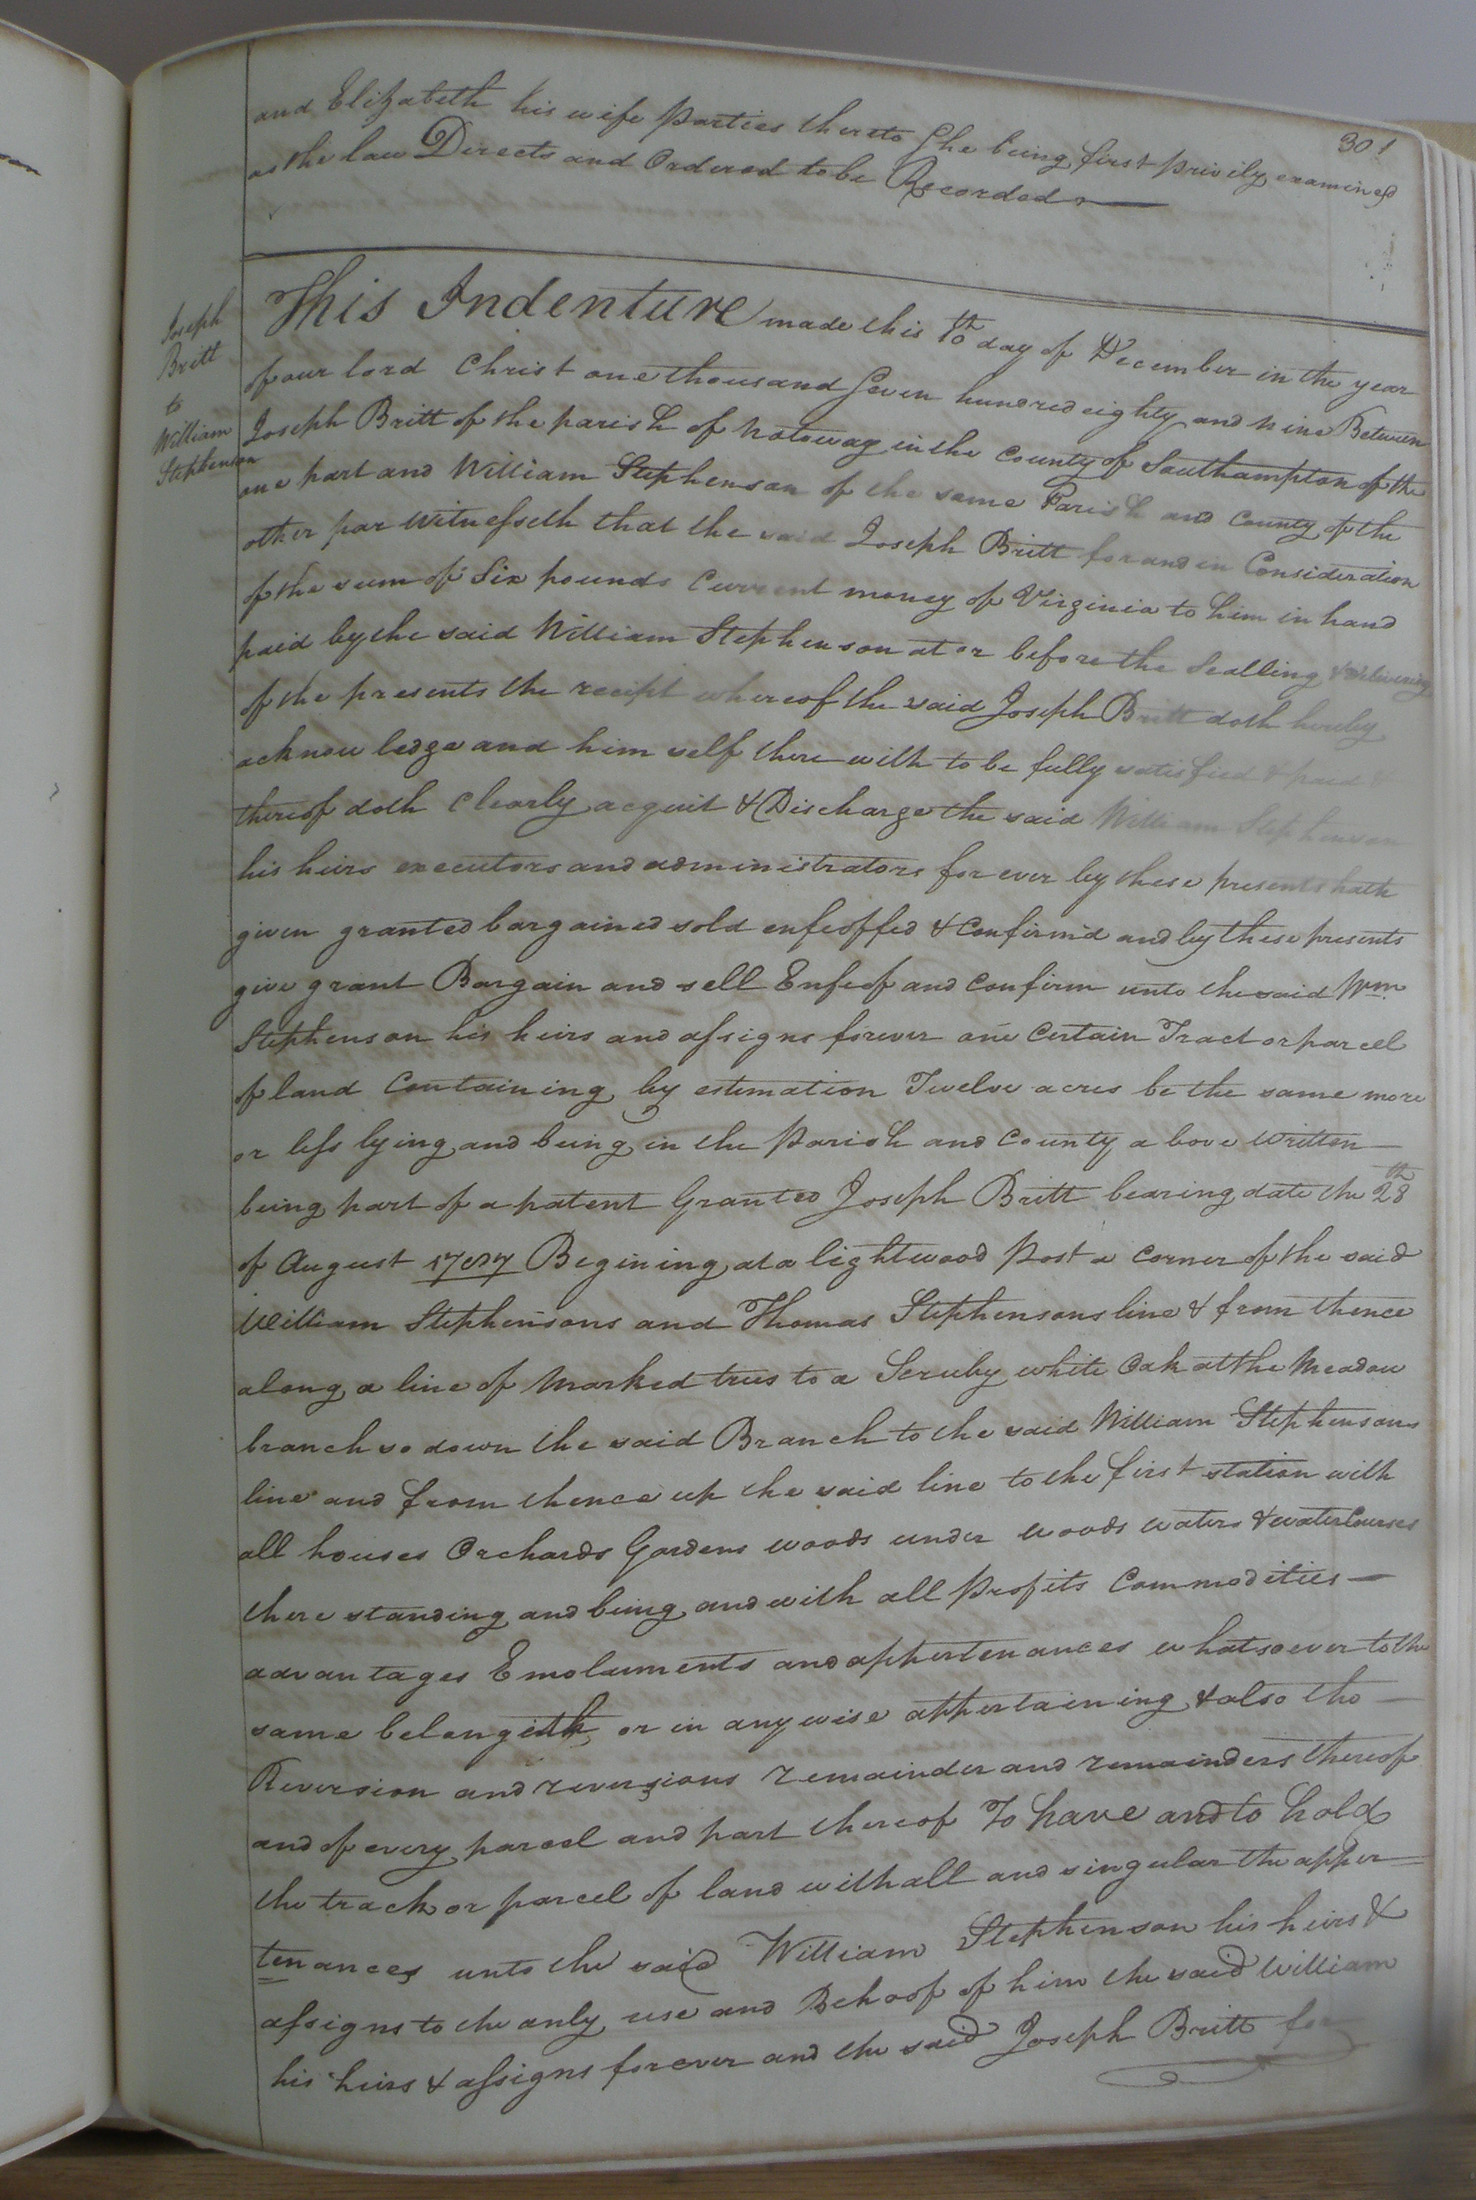 301
and Elizabeth his wife Parties thereto She being first privily examined
as the law Directs and Ordered to be Recorded
Joseph
Britt
to
William
Stephenson
This Indenture made this 10th day of December in the year
of our lord Christ one thousand Seven hundred eighty and nine Between
Joseph Britt of the parish of Notoway in the County of Southampton of the
one part and William Stephenson of the same Parish and County of the
other par Witnesseth that the said Joseph Britt for and in Consideration
of the sum of Six pounds Current money of Virginia to him in hand
paid by the said William Stephenson at or before the Sealling & delivering
of the presents the receipt whereof the said Joseph Britt doth hereby
acknowledge and him self there with to be fully satisfied & paid &
thereof doth clearly acquit & Discharge the said William Stephenson
his heirs executors and administrators for ever by these presents hath
given granted bargained sold enfeoffed & Confirm'd and by these presents
give grant Bargain and sell Enfeof and Confirm unto the said Wm
Stephenson his heirs and assigns forever one Certain Tract or parcel
of land Containing by estimation Twelve acres be the same more
or less lying and being in the Parish and County above written
being part of a patent Granted Joseph Britt bearing date the 28th
of August Begining at a lightwood Post a Corner of the said
William Stephensons and Thomas Stephensons line & from thence
along a line of Marked trees to a Scruby white Oak at the Meadow
branch so down the said Branch to the said William Stephensons
line and from thence up the said line to the first station with
all houses Orchards Gardens woods under woods waters & water Courses
there standing and being and with all Profits Commodities
advantages Emoluments and appertenances whatsoever to the
same belongeth or in any wise appertaining & also the
Reversion and reversions remainder and remainders thereof
and of every parcel and part thereof To have and to hold
the track or parcel of land with all and singular the apper
tenances unto the said William Stephenson his heirs &
assigns to the only use and Behoof of him the said William
his heirs & assigns forever and the said Joseph Britt for